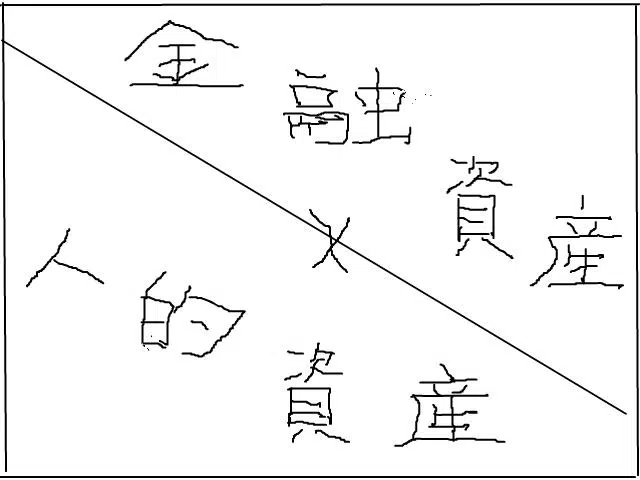 金融資産
X
人的資産